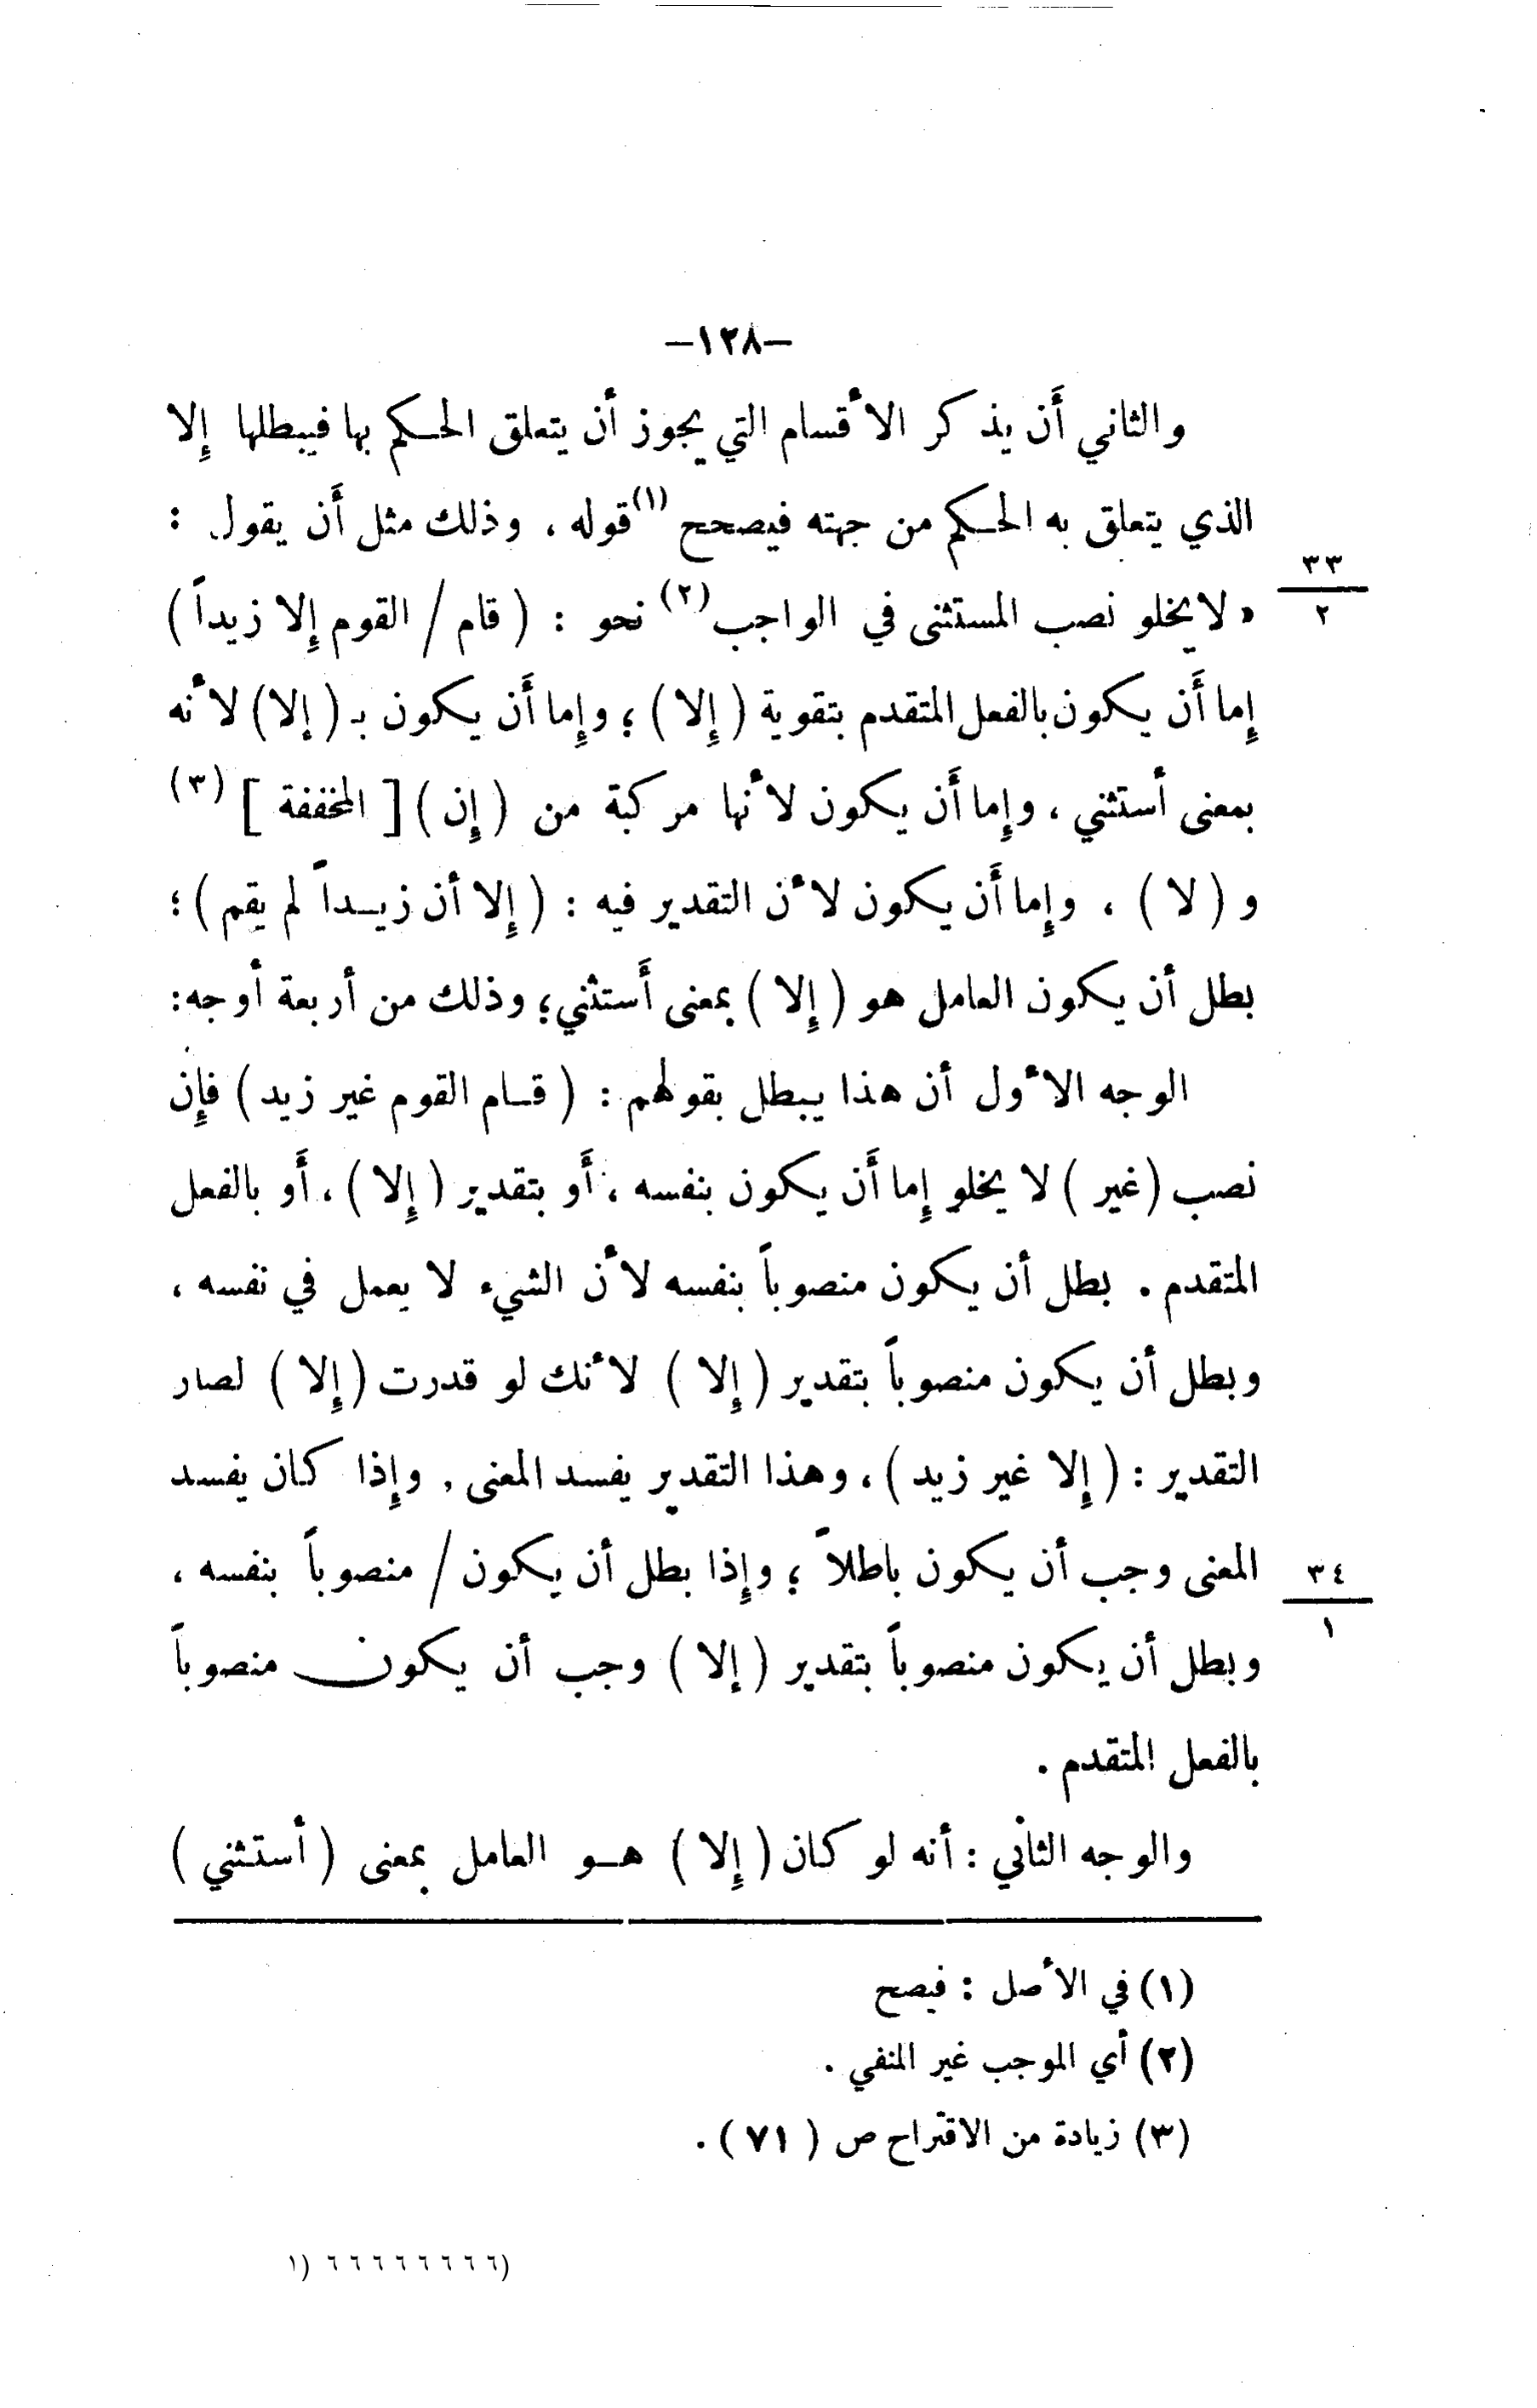 —١٢٨—
والثاني أَن يذكر الأقسام التي يجوز أن يتعلق الحكم بها فيبطلها إِلا
الذي يتعلق به الحكم من جهته فيصحح (١) قوله ، وذلك مثل أَن يقول :
٣٣
٢
« لا يخلو نصب المستثنى في الواجب (٢) نحو : ( قام / القوم إِلا زيداً )
إِما أَن يكون بالفعل المتقدم بتقوية ( إِلا ) ؛ وإِما أَن يكون بـ ( إلا ) لأنه
بمعنى أستثني ، وإِما أَن يكون لأنها مركبة من ( إِن ) [ المخففة ] (٣)
و ( لا ) ، وإِما أَن يكون لأن التقدير فيه : ( إِلا أن زيـداً لم يقم ) ؛
بطل أن يكون العامل هو ( إِلا ) بمعنى أَستثني ؛ وذلك من أربعة أوجه :
الوجه الأول أن هذا يبطل بقولهم : ( قـام القوم غير زيد ) فإِن
نصب ( غير ) لا يخلو إِما أَن يكون بنفسه ، أَو بتقدير ( إِلا ) ، أَو بالفعل
المتقدم . بطل أن يكون منصوباً بنفسه لأن الشيء لا يعمل في نفسه ،
وبطل أن يكون منصوباً بتقدير ( إِلا ) لأنك لو قدرت ( إِلا ) لصار
التقدير : ( إِلا غير زيد ) ، وهذا التقدير يفسد المعنى , وإِذا كان يفسد
المعنى وجب أن يكون باطلاً ؛ وإِذا بطل أن يكون / منصوباً بنفسه ،
٣٤
١
وبطل أن يكون منصوباً بتقدير ( إلا ) وجب أن يكون منصوباً
بالفعل المتقدم .
والوجه الثاني : أنه لو كان ( إِلا ) هـو العامل بمعنى ( أستثني )
(١) في الأصل : فيصح
(٢) أي الموجب غير المنفي .
(٣) زيادة من الاقتراح ص ( ٧١ ) .
١) ٦ ٦ ٦ ٦ ٦ ٦ ٦ ٦)